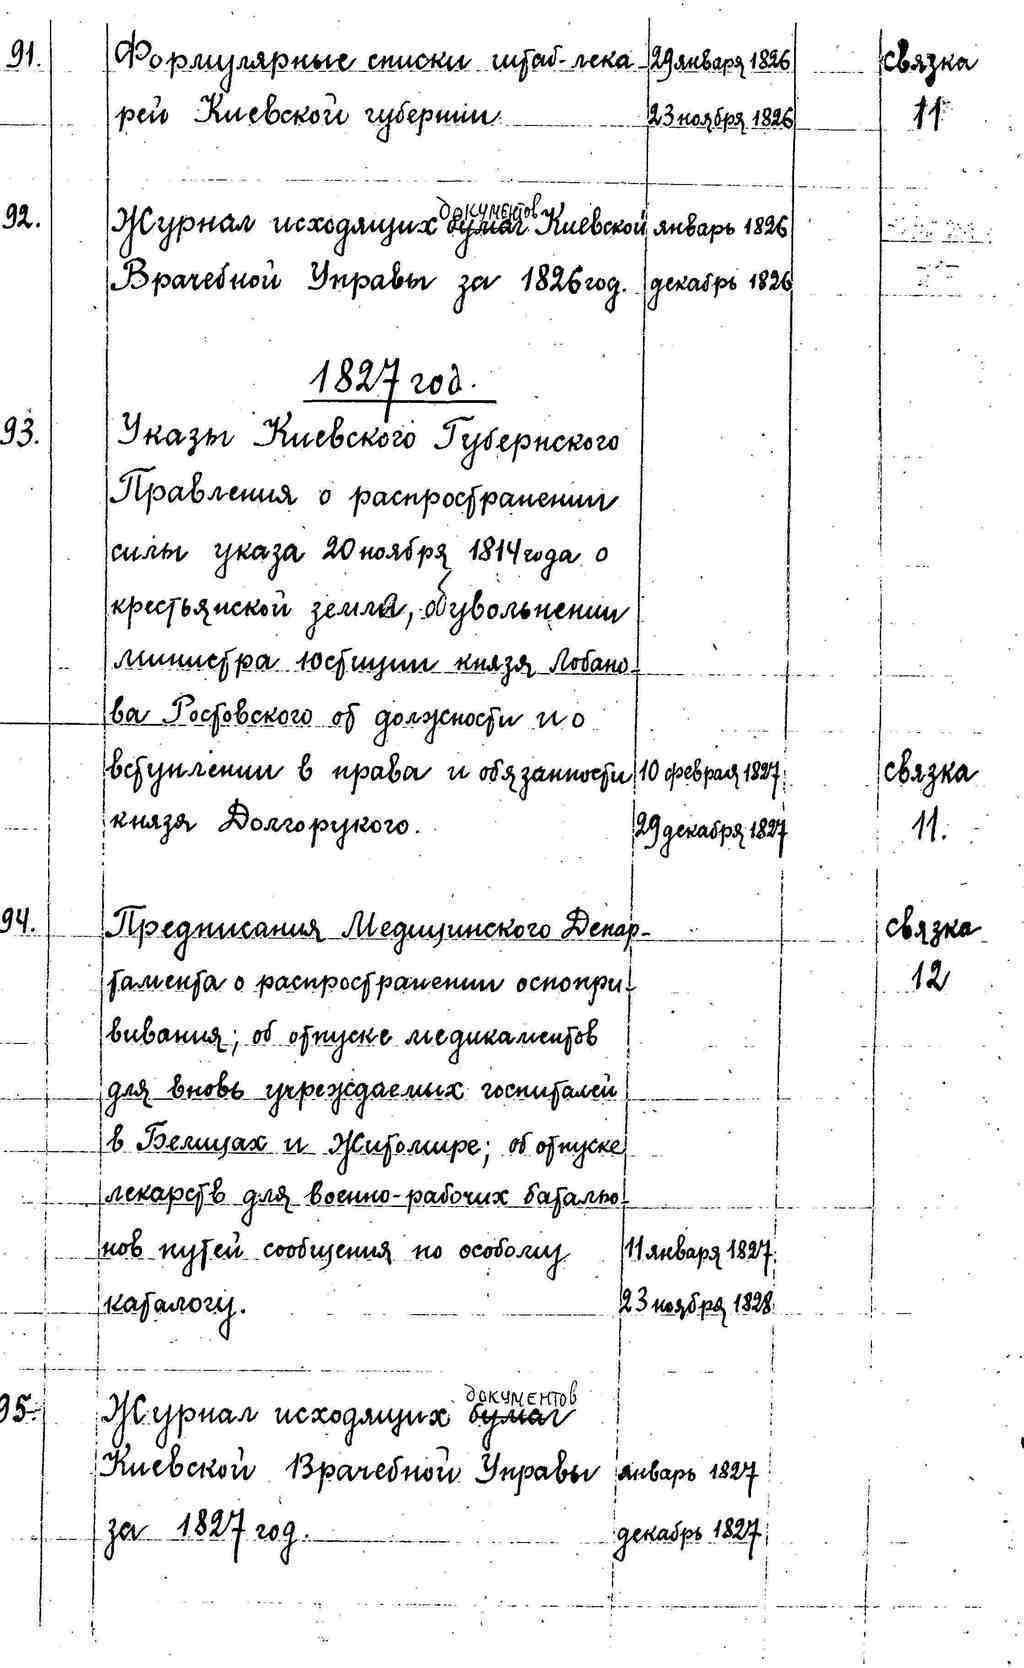 91. Формулярные списки штаб-лека- 29 января 1826 связка
рей Киевской губернии 23 ноября 1826 11
документов
92. Журнал исходящих бумаг Киевской январь 1826
Врачебной Управы за 1826 год. декабрь 1826
1827 год.
93. Указы Киевского Губернского
Правления о распространении
силы указа 20 ноября 1814 года о
крестьянской земле, об увольнении
министра юстиции князя Лобано-
ва Ростовского от должности и о
вступлении в права и обязанности 10 февраля 1827 связка
князя Долгорукого. 29 декабря 1827 11.
94. Предписания Медицинского Депар- связка
тамента о распространении оспопри- 12
вивания; об отпуске медикаментов
для вновь учреждаемых госпиталей
в Белицах и Житомире; об отпуске
лекарств для военно-рабочих батальо-
нов путей сообщения по особому 11 января 1827
каталогу. 23 ноября 1828
документов
95. Журнал исходящих бумаг
Киевской Врачебной Управы январь 1827
за 1827 год. декабрь 1827